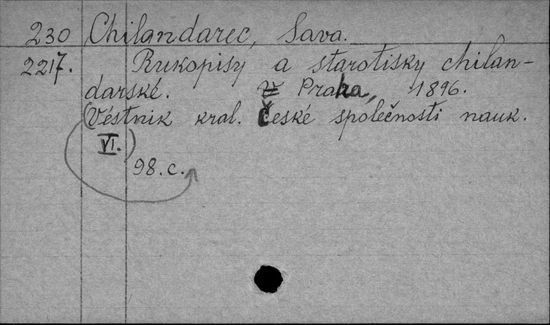 230 Chilandarec, Sava.
2217. Rukopisy a starotisky chilan-
darské. Praha, 1896.
(Věstnik kral. České společnosti nauk.
VI.)
98. c.